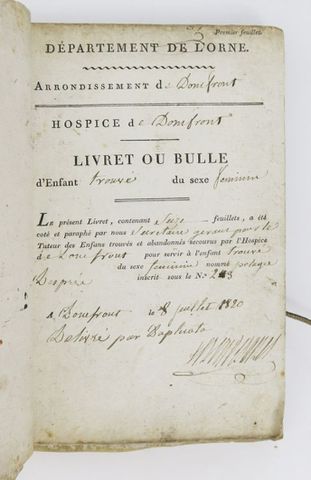 Premier feuillet.
DÉPARTEMENT DE L'ORNE.
ARRONDISSEMENT de Domfront
HOSPICE de Domfront
LIVRET OU BULLE
d'Enfant trouvé du sexe feminin
LE présent Livret, contenant Seize feuillets, a été
coté et paraphé par nous Secretaire gerant pour le
Tuteur des Enfans trouvés et abandonnés secourus par l'Hospice
de Domfront pour servir à l'enfant trouvé
du sexe feminin nommé
inscrit sous le N.º
à Domfront le 8 juillet 1820
Delivré par Duplicata